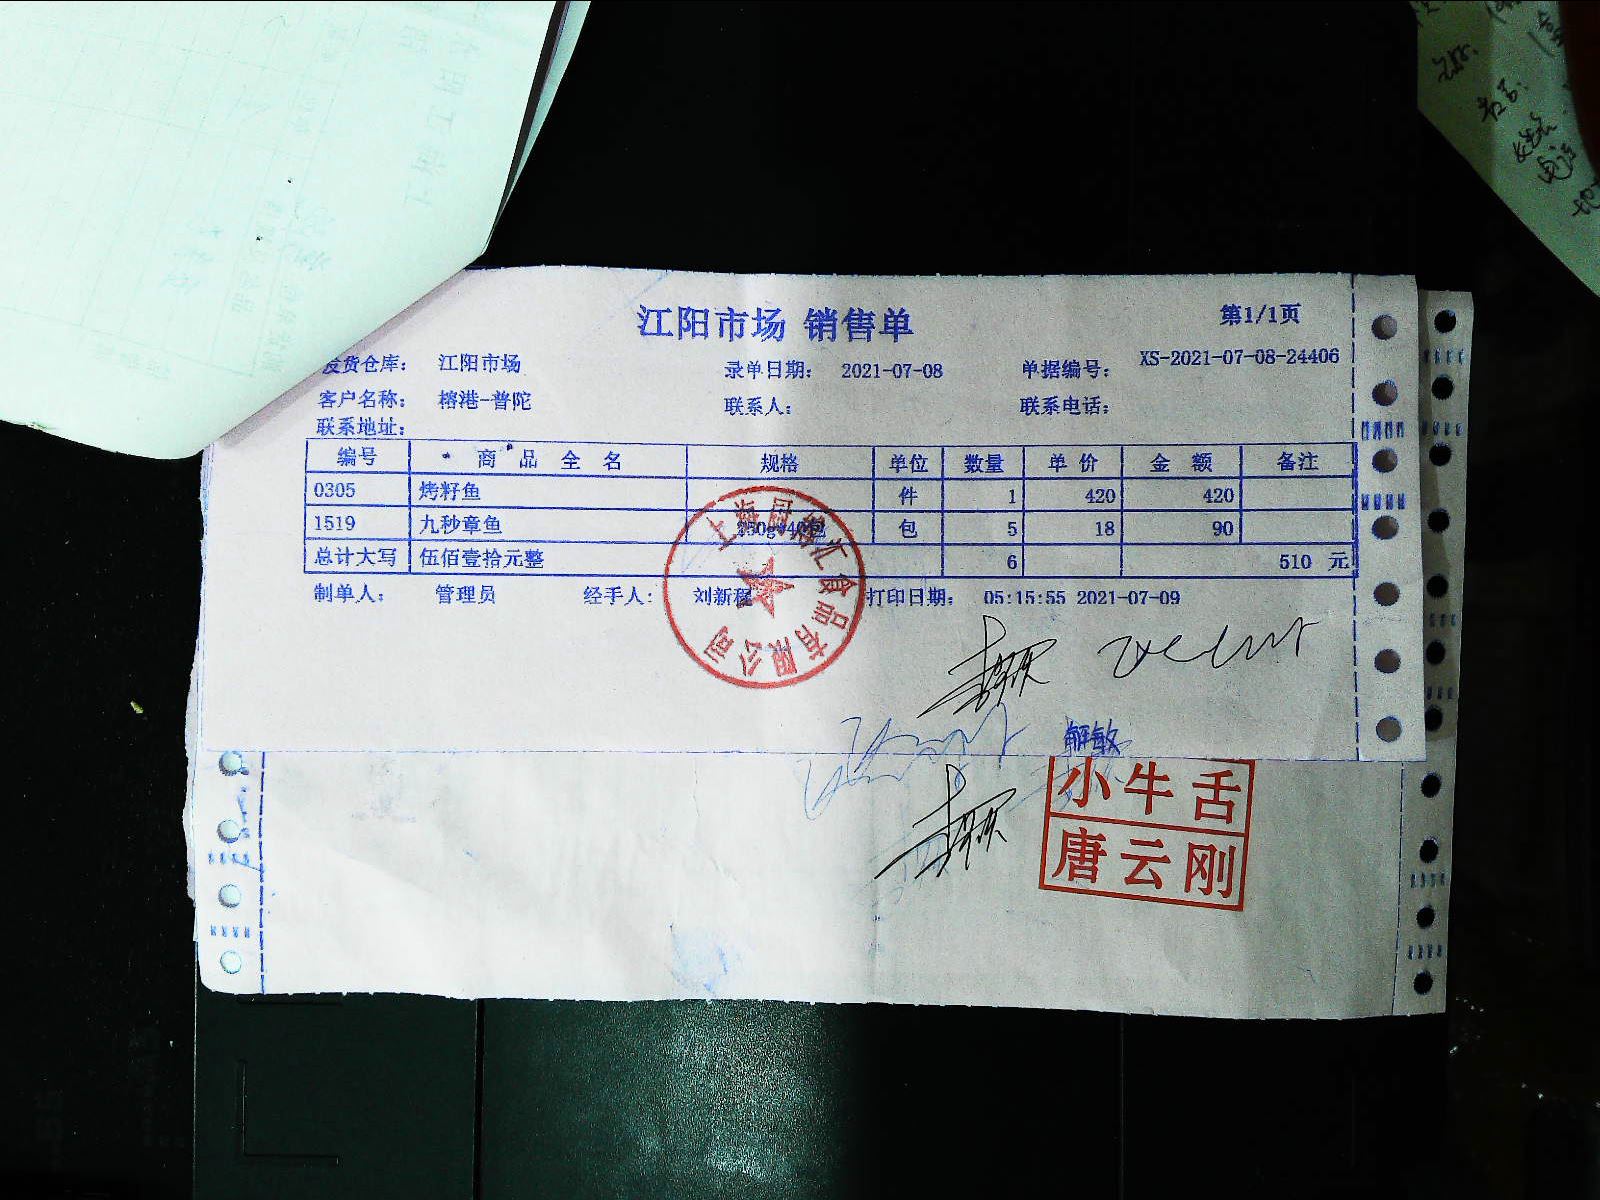 江阳市场 销售单
第1/1页
发货仓库： 江阳市场 录单日期： 2021-07-08 单据编号： XS-2021-07-08-24406
客户名称： 榕港-普陀 联系人： 联系电话：
联系地址：
编号 商品全名 规格 单位 数量 单价 金额 备注
0305 烤籽鱼 件 1 420 420
1519 九秒章鱼 包 5 18 90
总计大写 伍佰壹拾元整 6 510 元
制单人： 管理员 经手人： 刘新程 打印日期： 05:15:55 2021-07-09
解敏
小牛舌
唐云刚